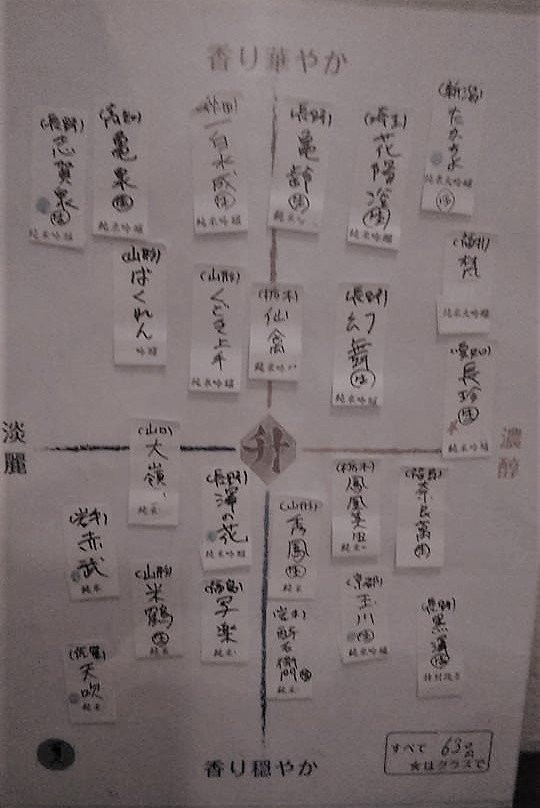 香り華やか
(長野)
志賀泉
純米吟醸
(高知)
亀泉
純米吟醸
(秋田)
一白水成
純米吟醸
(長野)
亀齢
純米
(埼玉)
花陽浴
純米吟醸
(新潟)
たかちよ
純米大吟醸
(山形)
ばくれん
吟醸
(山形)
くどき上手
純米吟醸
(栃木)
仙禽
純米
(長野)
幻舞
純米吟醸
(福井)
梵
純米大吟醸
(愛知)
長珍
純米吟醸
淡麗
升
濃醇
(山口)
大嶺
純米
(長野)
澤の花
純米吟醸
(山形)
秀鳳
純米
(栃木)
鳳凰美田
純米
(福島)
奈良萬
(岩手)
赤武
純米
(山形)
米鶴
純米
(福島)
写楽
純米
(岩手)
酉与右衛門
純米
(京都)
玉川
純米吟醸
(長野)
黒澤
(佐賀)
天吹
純米
香り穏やか
すべて 63
☆はグラスで